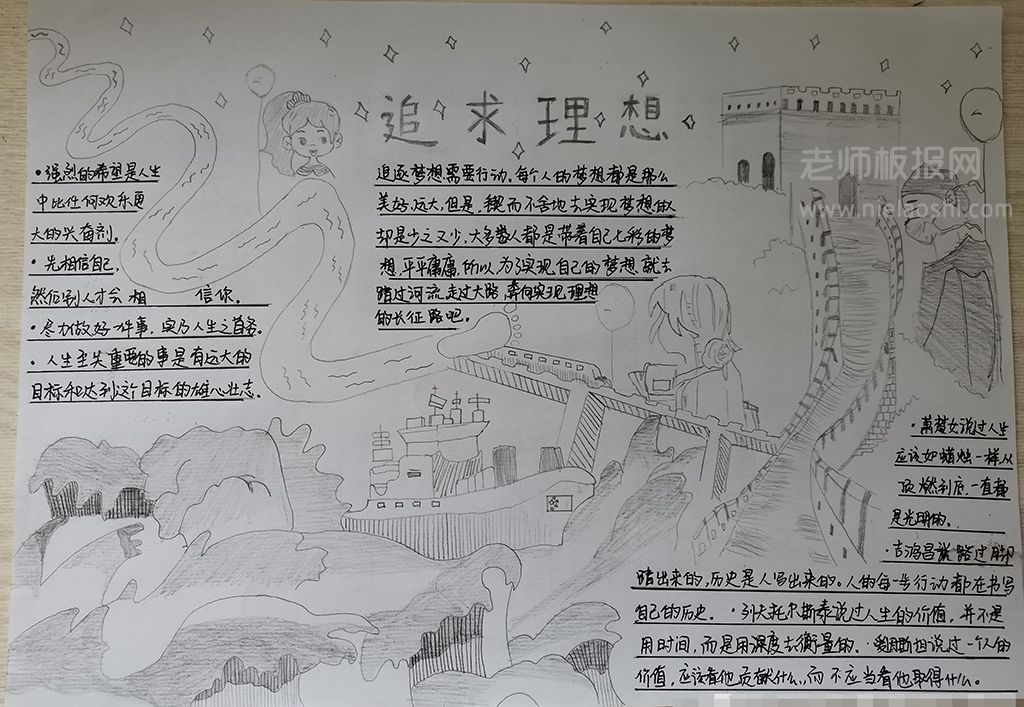 追求理想
老师板报网
www.nielaoshi.com
·强烈的希望是人生
中比任何欢乐更
大的兴奋剂。
·先相信自己,
然后别人才会相 信你。
·尽力做好一件事,实乃人生之首务。
·人生至关重要的事是有远大的
目标和达到这个目标的雄心壮志。
追逐梦想需要行动。每个人的梦想都是那么
美好,远大,但是,锲而不舍地去实现梦想的人
却是少之又少,大多数人都是带着自己七彩的梦
想,平平庸庸,所以,为了实现自己的梦想就去
踏过河流,走过大路,奔向实现理想
的长征路吧。
·萧楚女说过人生
应该如蜡烛一样从
顶燃到底,一直都
是光明的。
·吉鸿昌说路过脚
踏出来的,历史是人写出来的。人的每一步行动都在书写
自己的历史。·列夫托尔斯泰说过人生的价值,并不是
用时间,而是用深度去衡量的。·爱因斯坦说过一个人的
价值,应该看他贡献什么,而不应当看他取得什么。